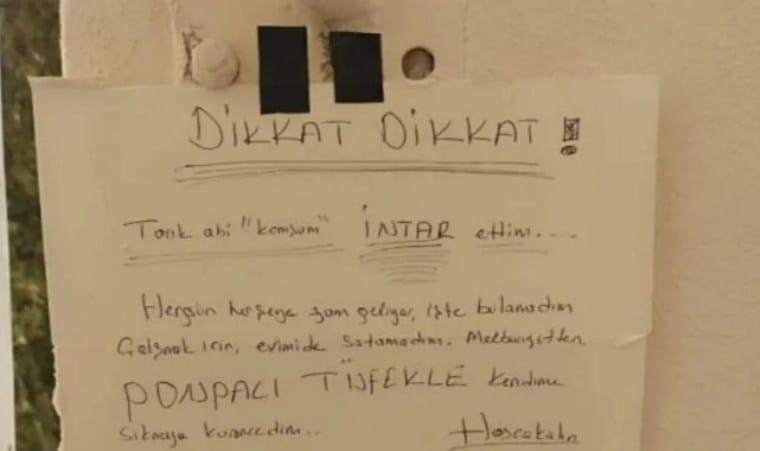 DİKKAT DİKKAT !
Tarık abi "komşum" İNTAR ettim....
Hergün herşeye zam geliyor, işte bulamadım
Çalışmak için, evimide Satamadım. Mecburiyetten
PONPALI TÜFEKLE kendime
Sıkmaya kararverdim..
Hoşcakalın